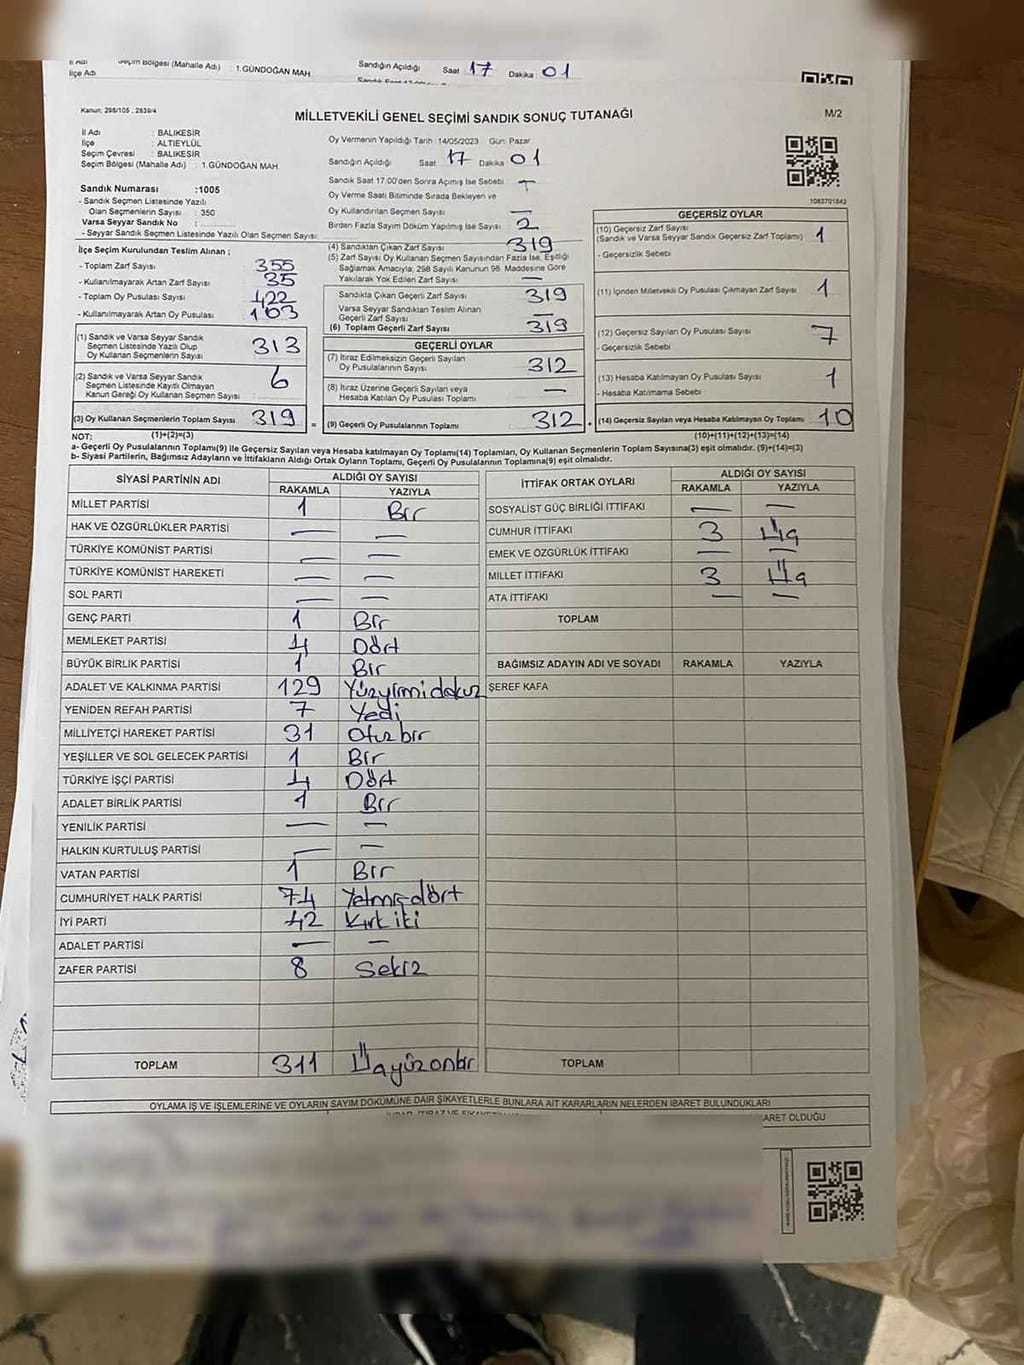 İl Adı
İlçe Adı
Seçim Bölgesi (Mahalle Adı) : 1.GÜNDOĞAN MAH.
Sandığın Açıldığı Saat 17 Dakika 01
Kanun: 298/105 , 2839/4
MİLLETVEKİLİ GENEL SEÇİMİ SANDIK SONUÇ TUTANAĞI
M/2
İl Adı : BALIKESİR
İlçe : ALTIEYLÜL
Seçim Çevresi : BALIKESİR
Seçim Bölgesi (Mahalle Adı) : 1.GÜNDOĞAN MAH.
Oy Vermenin Yapıldığı Tarih :14/05/2023 Gün: Pazar
Sandığın Açıldığı Saat 17 Dakika 01
Sandık Saat 17:00'den Sonra Açılmış İse Sebebi
Oy Verme Saati Bitiminde Sırada Bekleyen ve
Oy Kullandırılan Seçmen Sayısı —
Birden Fazla Sayım Döküm Yapılmış İse Sayısı 2
1083701842
Sandık Numarası :1005
- Sandık Seçmen Listesinde Yazılı
Olan Seçmenlerin Sayısı : 350
Varsa Seyyar Sandık No :
- Seyyar Sandık Seçmen Listesinde Yazılı Olan Seçmen Sayısı:
İlçe Seçim Kurulundan Teslim Alınan ;
- Toplam Zarf Sayısı 355
- Kullanılmayarak Artan Zarf Sayısı 35
- Toplam Oy Pusulası Sayısı 422
- Kullanılmayarak Artan Oy Pusulası 103
(1) Sandık ve Varsa Seyyar Sandık
Seçmen Listesinde Yazılı Olup
Oy Kullanan Seçmenlerin Sayısı 313
(2) Sandık ve Varsa Seyyar Sandık
Seçmen Listesinde Kayıtlı Olmayan
Kanun Gereği Oy Kullanan Seçmen Sayısı : 6
(3) Oy Kullanan Seçmenlerin Toplam Sayısı 319
(1)+(2)=(3)
(4) Sandıktan Çıkan Zarf Sayısı 319
(5) Zarf Sayısı Oy Kullanan Seçmen Sayısından Fazla İse, Eşitliği
Sağlamak Amacıyla; 298 Sayılı Kanunun 98. Maddesine Göre
Yakılarak Yok Edilen Zarf Sayısı —
Sandıkta Çıkan Geçerli Zarf Sayısı 319
Varsa Seyyar Sandıktan Teslim Alınan
Geçerli Zarf Sayısı —
(6) Toplam Geçerli Zarf Sayısı 319
GEÇERLİ OYLAR
(7) İtiraz Edilmeksizin Geçerli Sayılan
Oy Pusulalarının Sayısı 312
(8) İtiraz Üzerine Geçerli Sayılan veya
Hesaba Katılan Oy Pusulası Toplamı —
= (9) Geçerli Oy Pusulalarının Toplamı 312 +
GEÇERSİZ OYLAR
(10) Geçersiz Zarf Sayısı
(Sandık ve Varsa Seyyar Sandık Geçersiz Zarf Toplamı) 1
- Geçersizlik Sebebi
(11) İçinden Milletvekili Oy Pusulası Çıkmayan Zarf Sayısı 1
(12) Geçersiz Sayılan Oy Pusulası Sayısı 7
- Geçersizlik Sebebi
(13) Hesaba Katılmayan Oy Pusulası Sayısı 1
- Hesaba Katılmama Sebebi
(14) Geçersiz Sayılan veya Hesaba Katılmayan Oy Toplamı 10
(10)+(11)+(12)+(13)=(14)
NOT:
a- Geçerli Oy Pusulalarının Toplamı(9) ile Geçersiz Sayılan veya Hesaba katılmayan Oy Toplamı(14) Toplamları, Oy Kullanan Seçmenlerin Toplam Sayısına(3) eşit olmalıdır. (9)+(14)=(3)
b- Siyasi Partilerin, Bağımsız Adayların ve İttifakların Aldığı Ortak Oyların Toplamı, Geçerli Oy Pusulalarının Toplamına(9) eşit olmalıdır.
SİYASİ PARTİNİN ADI ALDIĞI OY SAYISI
RAKAMLA YAZIYLA
MİLLET PARTİSİ 1 Bir
HAK VE ÖZGÜRLÜKLER PARTİSİ — —
TÜRKİYE KOMÜNİST PARTİSİ — —
TÜRKİYE KOMÜNİST HAREKETİ — —
SOL PARTİ — —
GENÇ PARTİ 1 Bir
MEMLEKET PARTİSİ 4 Dört
BÜYÜK BİRLİK PARTİSİ 1 Bir
ADALET VE KALKINMA PARTİSİ 129 Yüzyirmidokuz
YENİDEN REFAH PARTİSİ 7 Yedi
MİLLİYETÇİ HAREKET PARTİSİ 31 Otuzbir
YEŞİLLER VE SOL GELECEK PARTİSİ 1 Bir
TÜRKİYE İŞÇİ PARTİSİ 4 Dört
ADALET BİRLİK PARTİSİ 1 Bir
YENİLİK PARTİSİ — —
HALKIN KURTULUŞ PARTİSİ — —
VATAN PARTİSİ 1 Bir
CUMHURİYET HALK PARTİSİ 74 Yetmişdört
İYİ PARTİ 42 Kırk iki
ADALET PARTİSİ — —
ZAFER PARTİSİ 8 Sekiz
TOPLAM 311 Üçyüzonbir
İTTİFAK ORTAK OYLARI ALDIĞI OY SAYISI
RAKAMLA YAZIYLA
SOSYALİST GÜÇ BİRLİĞİ İTTİFAKI — —
CUMHUR İTTİFAKI 3 Üç
EMEK VE ÖZGÜRLÜK İTTİFAKI — —
MİLLET İTTİFAKI 3 Üç
ATA İTTİFAKI — —
TOPLAM
BAĞIMSIZ ADAYIN ADI VE SOYADI RAKAMLA YAZIYLA
ŞEREF KAFA
TOPLAM
OYLAMA İŞ VE İŞLEMLERİNE VE OYLARIN SAYIM DÖKÜMÜNE DAİR ŞİKAYETLERLE BUNLARA AİT KARARLARIN NELERDEN İBARET BULUNDUKLARI
ARET OLDUĞU